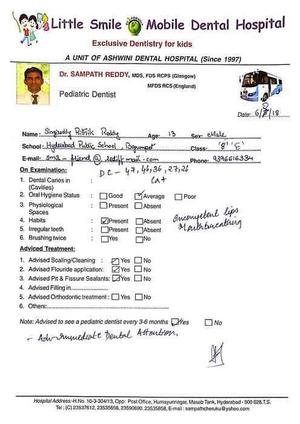 Little Smile Mobile Dental Hospital
Exclusive Dentistry for kids
A UNIT OF ASHWINI DENTAL HOSPITAL (Since 1997)
Dr. SAMPATH REDDY, MDS, FDS RCPS (Glasgow)
MFDS RCS (England)
Pediatric Dentist
Date: 6/8/18
Name: Reddy Age: 13 Sex: Male
School: Hyderabad Public School, Begumpet Class: '8' 'C'
E-mail: Phone:
On Examination: DC - 47, 46, 36, 27, 26
1. Dental Caries in : Ca+
(Cavities)
2. Oral Hygiene Status : Good Average Poor
3. Physiological : Present Absent
Spaces
4. Habits : Present Absent
incompetent lips
Mouthbreathing
5. Irregular teeth : Present Absent
6. Brushing twice : Yes No
Adviced Treatment:
1. Advised Scaling/Cleaning : Yes No
2. Advised Flouride application: Yes No
3. Advised Pit & Fissure Sealants: Yes No
4. Advised Filling in
5. Advised Orthodontic treatment : Yes No
6. Others:
Note: Advised to see a pediatric dentist every 3-6 months Yes No
- Adv Immediate Dental Attention.
Hospital Address:-H.No. 10-3-304/13, Opp: Post Office, Humayunnagar, Masab Tank, Hyderabad - 500 028.T.S.
Tel : (C) 23537612, 23535656, 23590690. 23535858, E-mail : sampathcheruku@yahoo.com